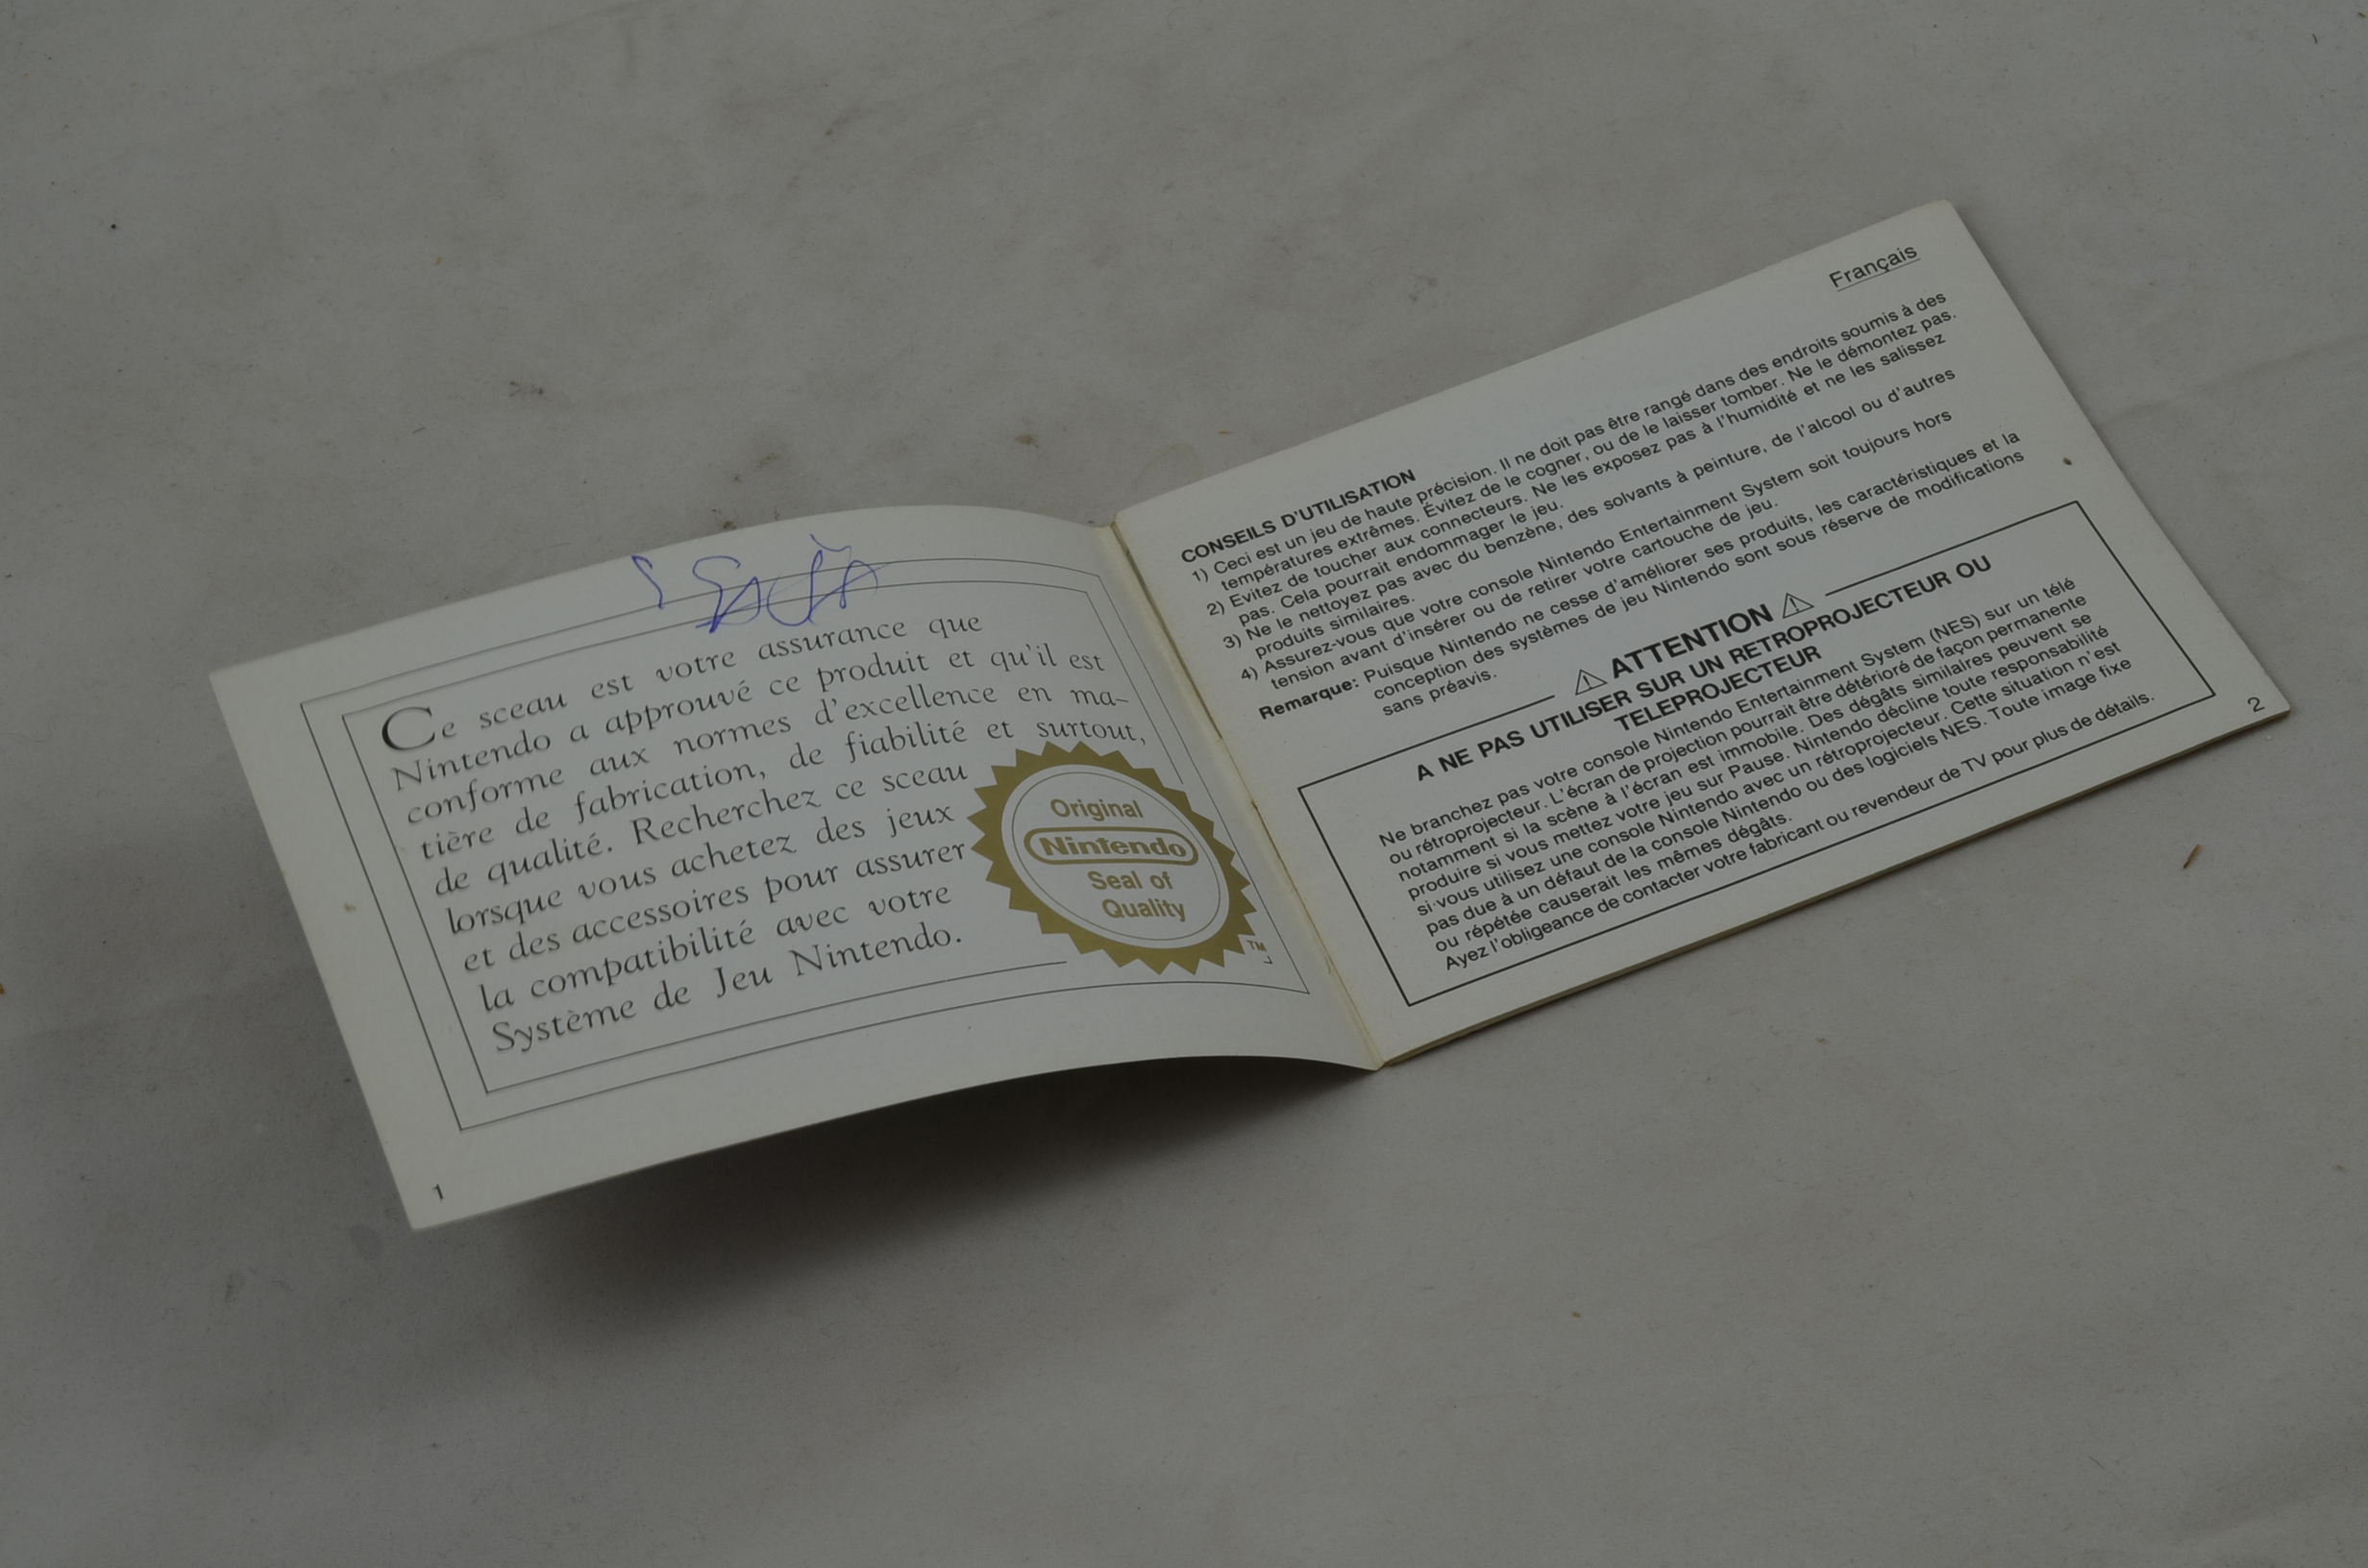 Ce sceau est votre assurance que
Nintendo a approuvé ce produit et qu'il est
conforme aux normes d'excellence en ma-
tière de fabrication, de fiabilité et surtout,
de qualité. Recherchez ce sceau
lorsque vous achetez des jeux
et des accessoires pour assurer
la compatibilité avec votre
Système de Jeu Nintendo.
Original
Nintendo
Seal of
Quality
TM
1
Français
CONSEILS D'UTILISATION
1) Ceci est un jeu de haute précision. Il ne doit pas être rangé dans des endroits soumis à des
températures extrêmes. Évitez de le cogner, ou de le laisser tomber. Ne le démontez pas.
2) Evitez de toucher aux connecteurs. Ne les exposez pas à l'humidité et ne les salissez
pas. Cela pourrait endommager le jeu.
3) Ne le nettoyez pas avec du benzène, des solvants à peinture, de l'alcool ou d'autres
produits similaires.
4) Assurez-vous que votre console Nintendo Entertainment System soit toujours hors
tension avant d'insérer ou de retirer votre cartouche de jeu.
Remarque: Puisque Nintendo ne cesse d'améliorer ses produits, les caractéristiques et la
conception des systèmes de jeu Nintendo sont sous réserve de modifications
sans préavis.
ATTENTION
A NE PAS UTILISER SUR UN RETROPROJECTEUR OU
TELEPROJECTEUR
Ne branchez pas votre console Nintendo Entertainment System (NES) sur un télé
ou rétroprojecteur. L'écran de projection pourrait être détérioré de façon permanente
notamment si la scène à l'écran est immobile. Des dégâts similaires peuvent se
produire si vous mettez votre jeu sur Pause. Nintendo décline toute responsabilité
si vous utilisez une console Nintendo avec un rétroprojecteur. Cette situation n'est
pas due à un défaut de la console Nintendo ou des logiciels NES. Toute image fixe
ou répétée causerait les mêmes dégâts.
Ayez l'obligeance de contacter votre fabricant ou revendeur de TV pour plus de détails.
2